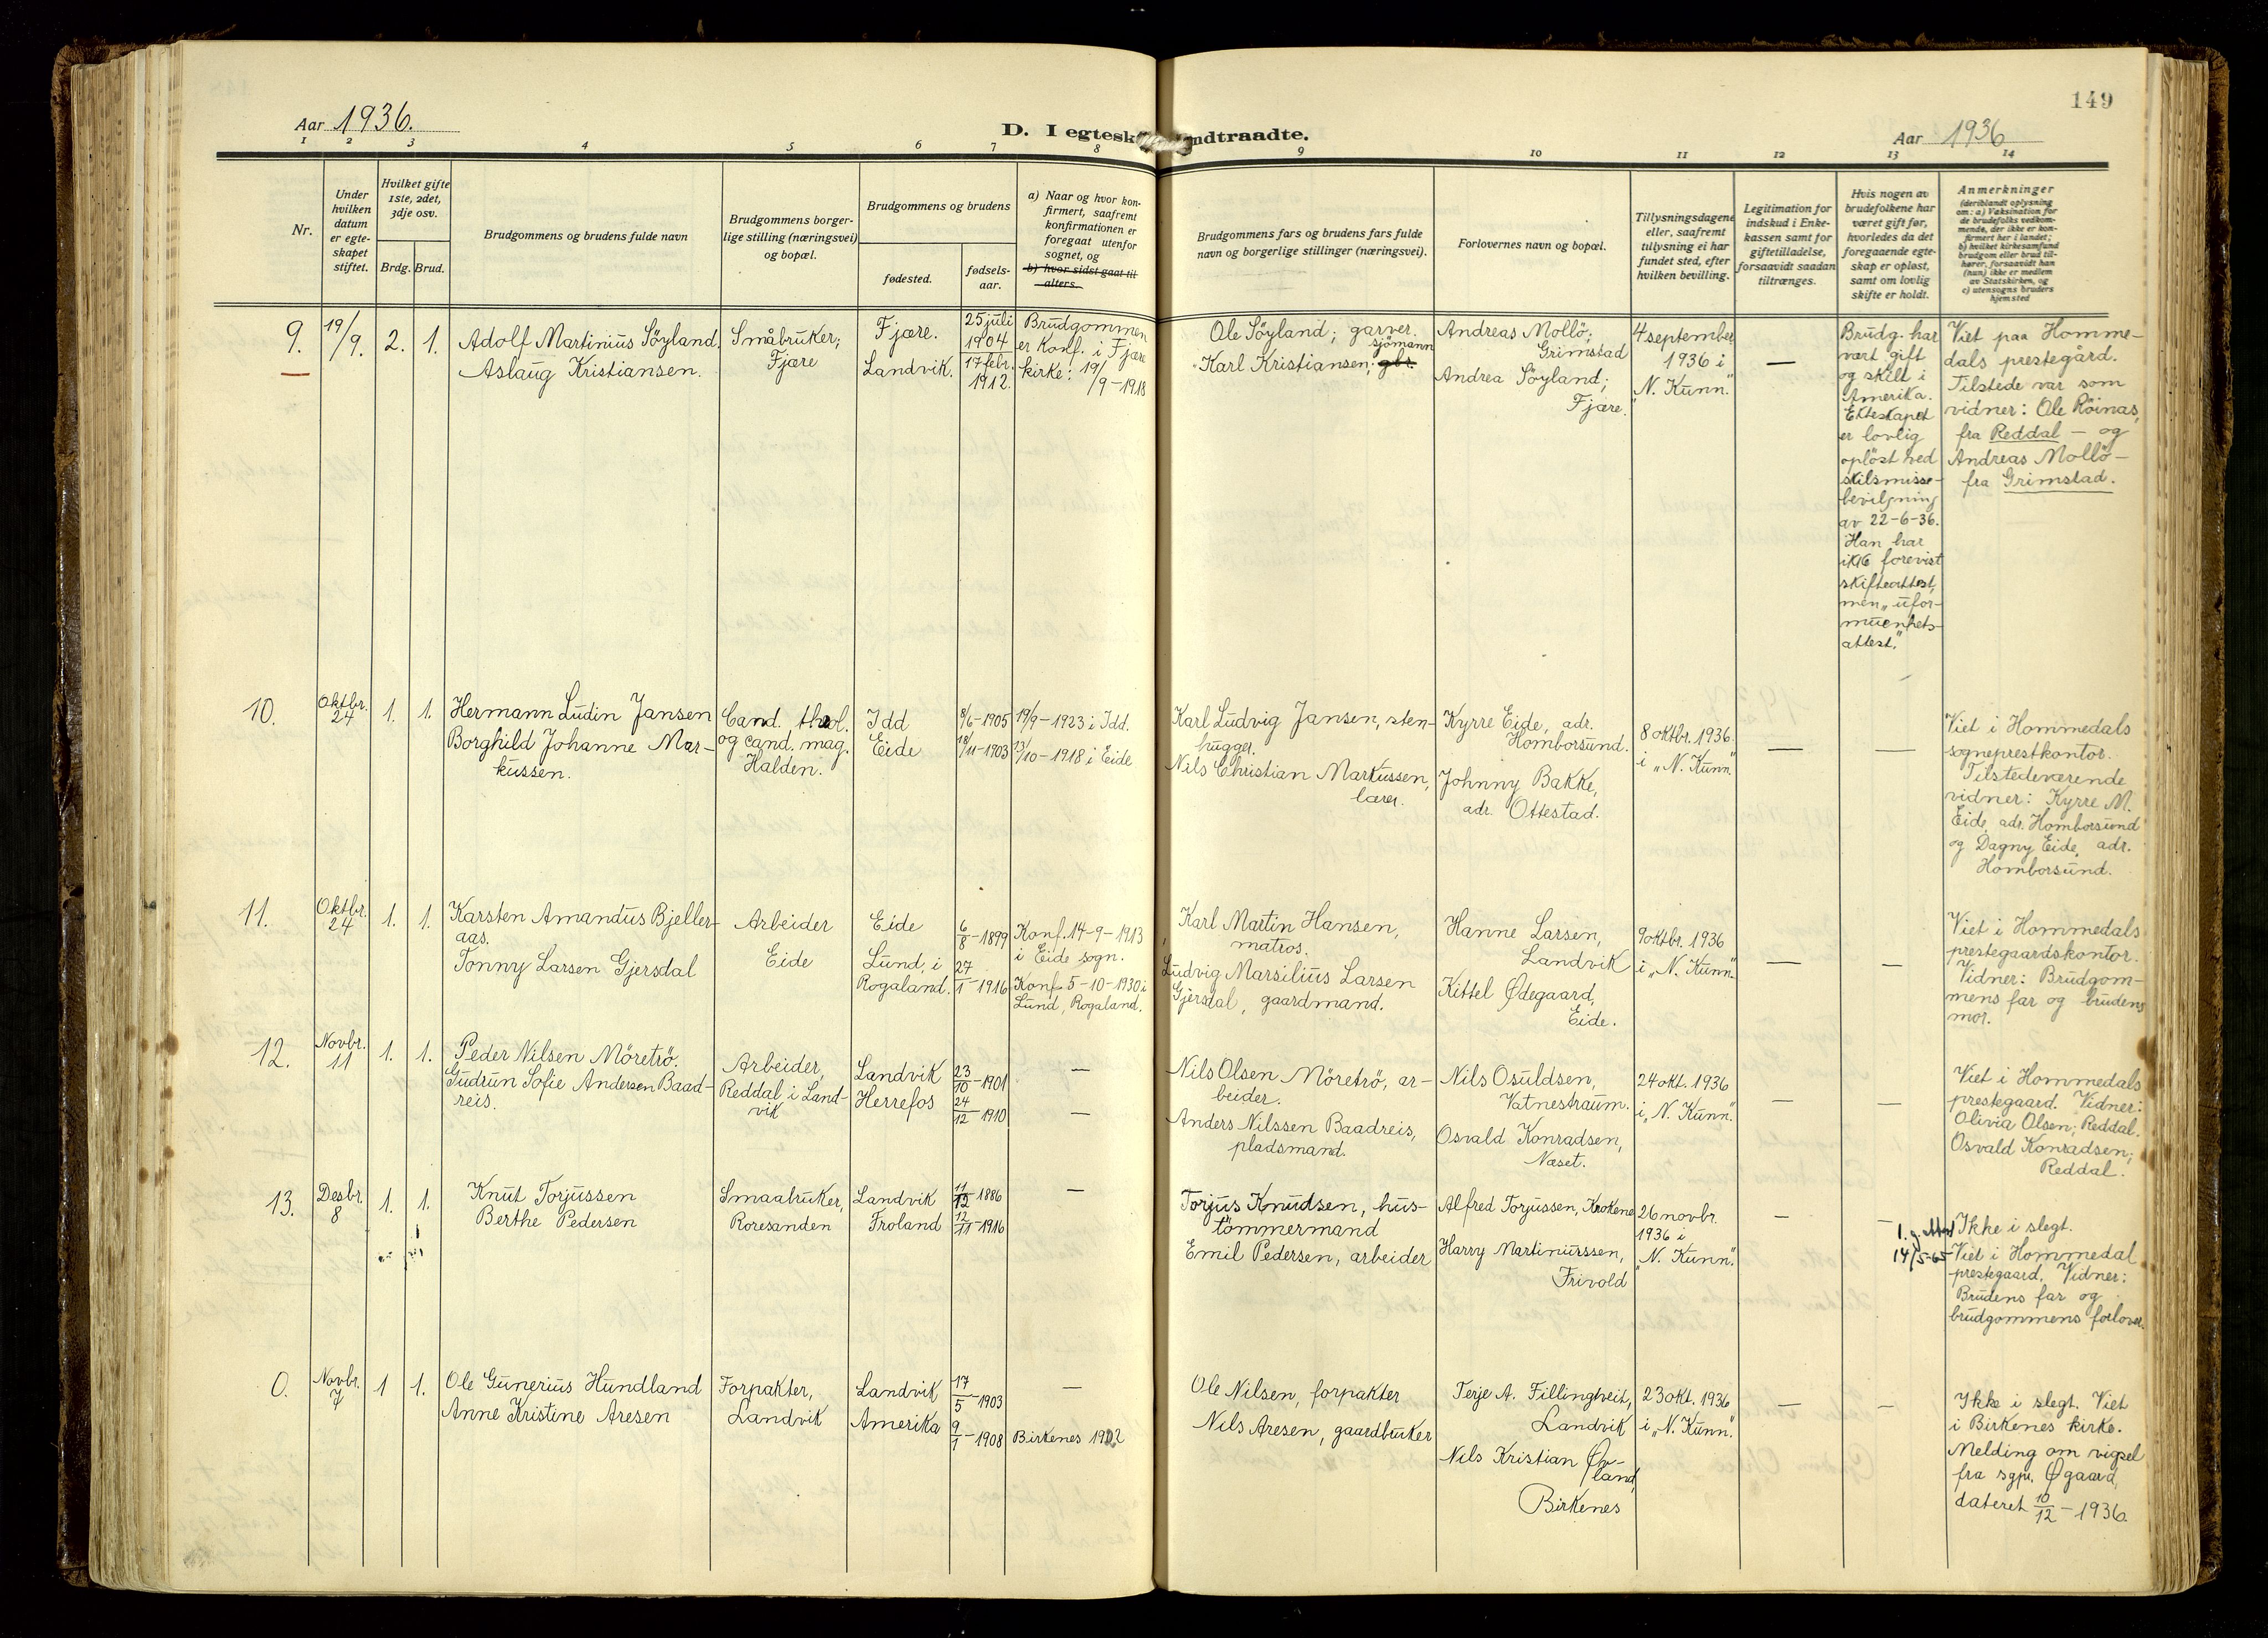 149
Aar 1936.
D. I egtesk
ndtraadte.
Aar 1936
1 2 3 4 5 6 7 8 9 10 11 12 13 14
Nr.
Under
hvilken
datum
er egte-
skapet
stiftet.
Hvilket gifte
1ste, 2det,
3dje osv.
Brdg. Brud.
Brudgommens og brudens fulde navn
Brudgommens borger-
lige stilling (næringsvei)
og bopæl.
Brudgommens og brudens
fødested.
fødsels-
aar.
a) Naar og hvor kon-
firmert, saafremt
konfirmationen er
foregaat utenfor
sognet, og
b) hvor sidst gaat til
alters.
Brudgommens fars og brudens fars fulde
navn og borgerlige stillinger (næringsvei).
Forlovernes navn og bopæl.
Tillysningsdagene
eller, saafremt
tillysning ei har
fundet sted, efter
hvilken bevilling.
Legitimation for
indskud i Enke-
kassen samt for
giftetilladelse,
forsaavidt saadan
tiltrænges.
Hvis nogen av
brudefolkene har
været gift før,
hvorledes da det
foregaaende egte-
skap er opløst,
samt om lovlig
skifte er holdt.
Anmerkninger
(deriblandt oplysning
om: a) Vaksination for
de brudefolks vedkom-
mende, der ikke er kon-
firmert her i landet;
b) hvilket kirkesamfund
brudgom eller brud til-
hører, forsaavidt han
(hun) ikke er medlem
av Statskirken, og
c) utensogns bruders
hjemsted
9.
19/9.
2. 1.
Adolf Martinius Söyland.
Aslaug Kristiansen.
Småbruker;
Fjære
Fjære.
Landvik.
25 juli
1904
17 febr.
1912.
Brudgommen
er konf. i Fjære
kirke: 19/
/9-1918
Ole Söyland; garver.
sjömann
Karl Kristiansen; gbr.
Andreas Mollö;
Grimstad
Andrea Söyland;
Fjære.
4 september
1936 i
"N. Kunn."
—
Brudg. har
vært gift
og skilt i
Amerika.
Ekteskapet
er lovlig
opløst ved
skilsmisse-
bevilgning
av 22-6-36.
Han har
ikke forevist
skifteattest,
men "ufor-
muenhets-
attest."
Viet paa Homme-
dals prestegård.
Tilstede var som
vidner: Ole Röinas,
fra Reddal — og
Andreas Mollö —
fra Grimstad.
10.
Oktbr.
24
1. 1.
Hermann Ludin Jansen
Borghild Johanne Mar-
kussen.
Cand. theol.
og cand. mag.
Halden.
Idd
Eide
8/6-1905
18/11-1903
19/9-1923 i Idd.
13/10-1918 i Eide
Karl Ludvig Jansen, sten-
hugger.
Nils Christian Markussen,
lærer.
Kyrre Eide, adr.
Homborsund.
Johnny Bakke,
adr. Ottestad.
8 oktbr. 1936.
i "N. Kunn."
—
—
Viet i Hommedals
sogneprestkontor.
Tilstedeværende
vidner: Kyrre M.
Eide, adr. Homborsund
og Dagny Eide, adr.
Homborsund.
11.
Oktbr.
24
1. 1.
Karsten Amandus Bjeller-
aas.
Tonny Larsen Gjersdal
Arbeider
Eide
Eide
Lund, i
Rogaland.
6/8-1899
27/1-1916
Konf. 14-9-1913
i Eide sogn.
Konf. 5-10-1930 i
Lund, Rogaland.
Karl Martin Hansen,
matros.
Ludvig Marsilius Larsen
Gjersdal, gaardmand.
Hanne Larsen,
Landvik
Kittel Ødegaard,
Eide.
9 oktbr. 1936
i "N. Kunn."
—
—
Viet i Hommedals
prestegaardskontor.
Vidner: Brudgom-
mens far og brudens
mor.
12.
Novbr.
11
1. 1.
Peder Nilsen Möretrö.
Gudrun Sofie Andersen Baad-
reis.
Arbeider,
Reddal i Land-
vik
Landvik
Herrefos
23/10-1901
24/12-1910
—
—
Nils Olsen Möretrö, ar-
beider.
Anders Nilssen Baadreis,
pladsmand.
Nils Osuldsen,
Vatnestraum.
Osvald Konradsen,
Næset.
24 okt. 1936
i "N. Kunn."
—
—
Viet i Hommedals
prestegaard. Vidner:
Olivia Olsen; Reddal.
Osvald Konradsen;
Reddal.
13.
Desbr.
8
1. 1.
Knut Torjussen
Berthe Pedersen
Smaabruker,
Roresanden
Landvik
Froland
11/12-1886
12/11-1916
—
Torjus Knudsen, hus-
tömmermand
Emil Pedersen, arbeider
Alfred Torjussen, Krokene
Harry Martiniussen,
Frivold
26 novbr.
1936 i
"N. Kunn."
—
—
14/5-65
Ikke i slegt.
Viet i Hommedal
prestegaard. Vidner:
Brudens far og
brudgommens forlover.
0.
Novbr.
7
1 1.
Ole Gunerius Hundland
Anne Kristine Aresen
Forpakter,
Landvik
Landvik
Amerika
17/5-1903
9/1-1908
—
Birkenes 1922
Ole Nilsen, forpakter
Nils Aresen, gaardbruker
Terje A. Fillingtveit,
Landvik
Nils Kristian Øv-
land,
Birkenes
23 okt. 1936
i "N. Kunn."
—
—
Ikke i slegt. Viet
i Birkenes kirke.
Melding om vigsel
fra sgpr. Øgaard,
dateret 10/12-1936.